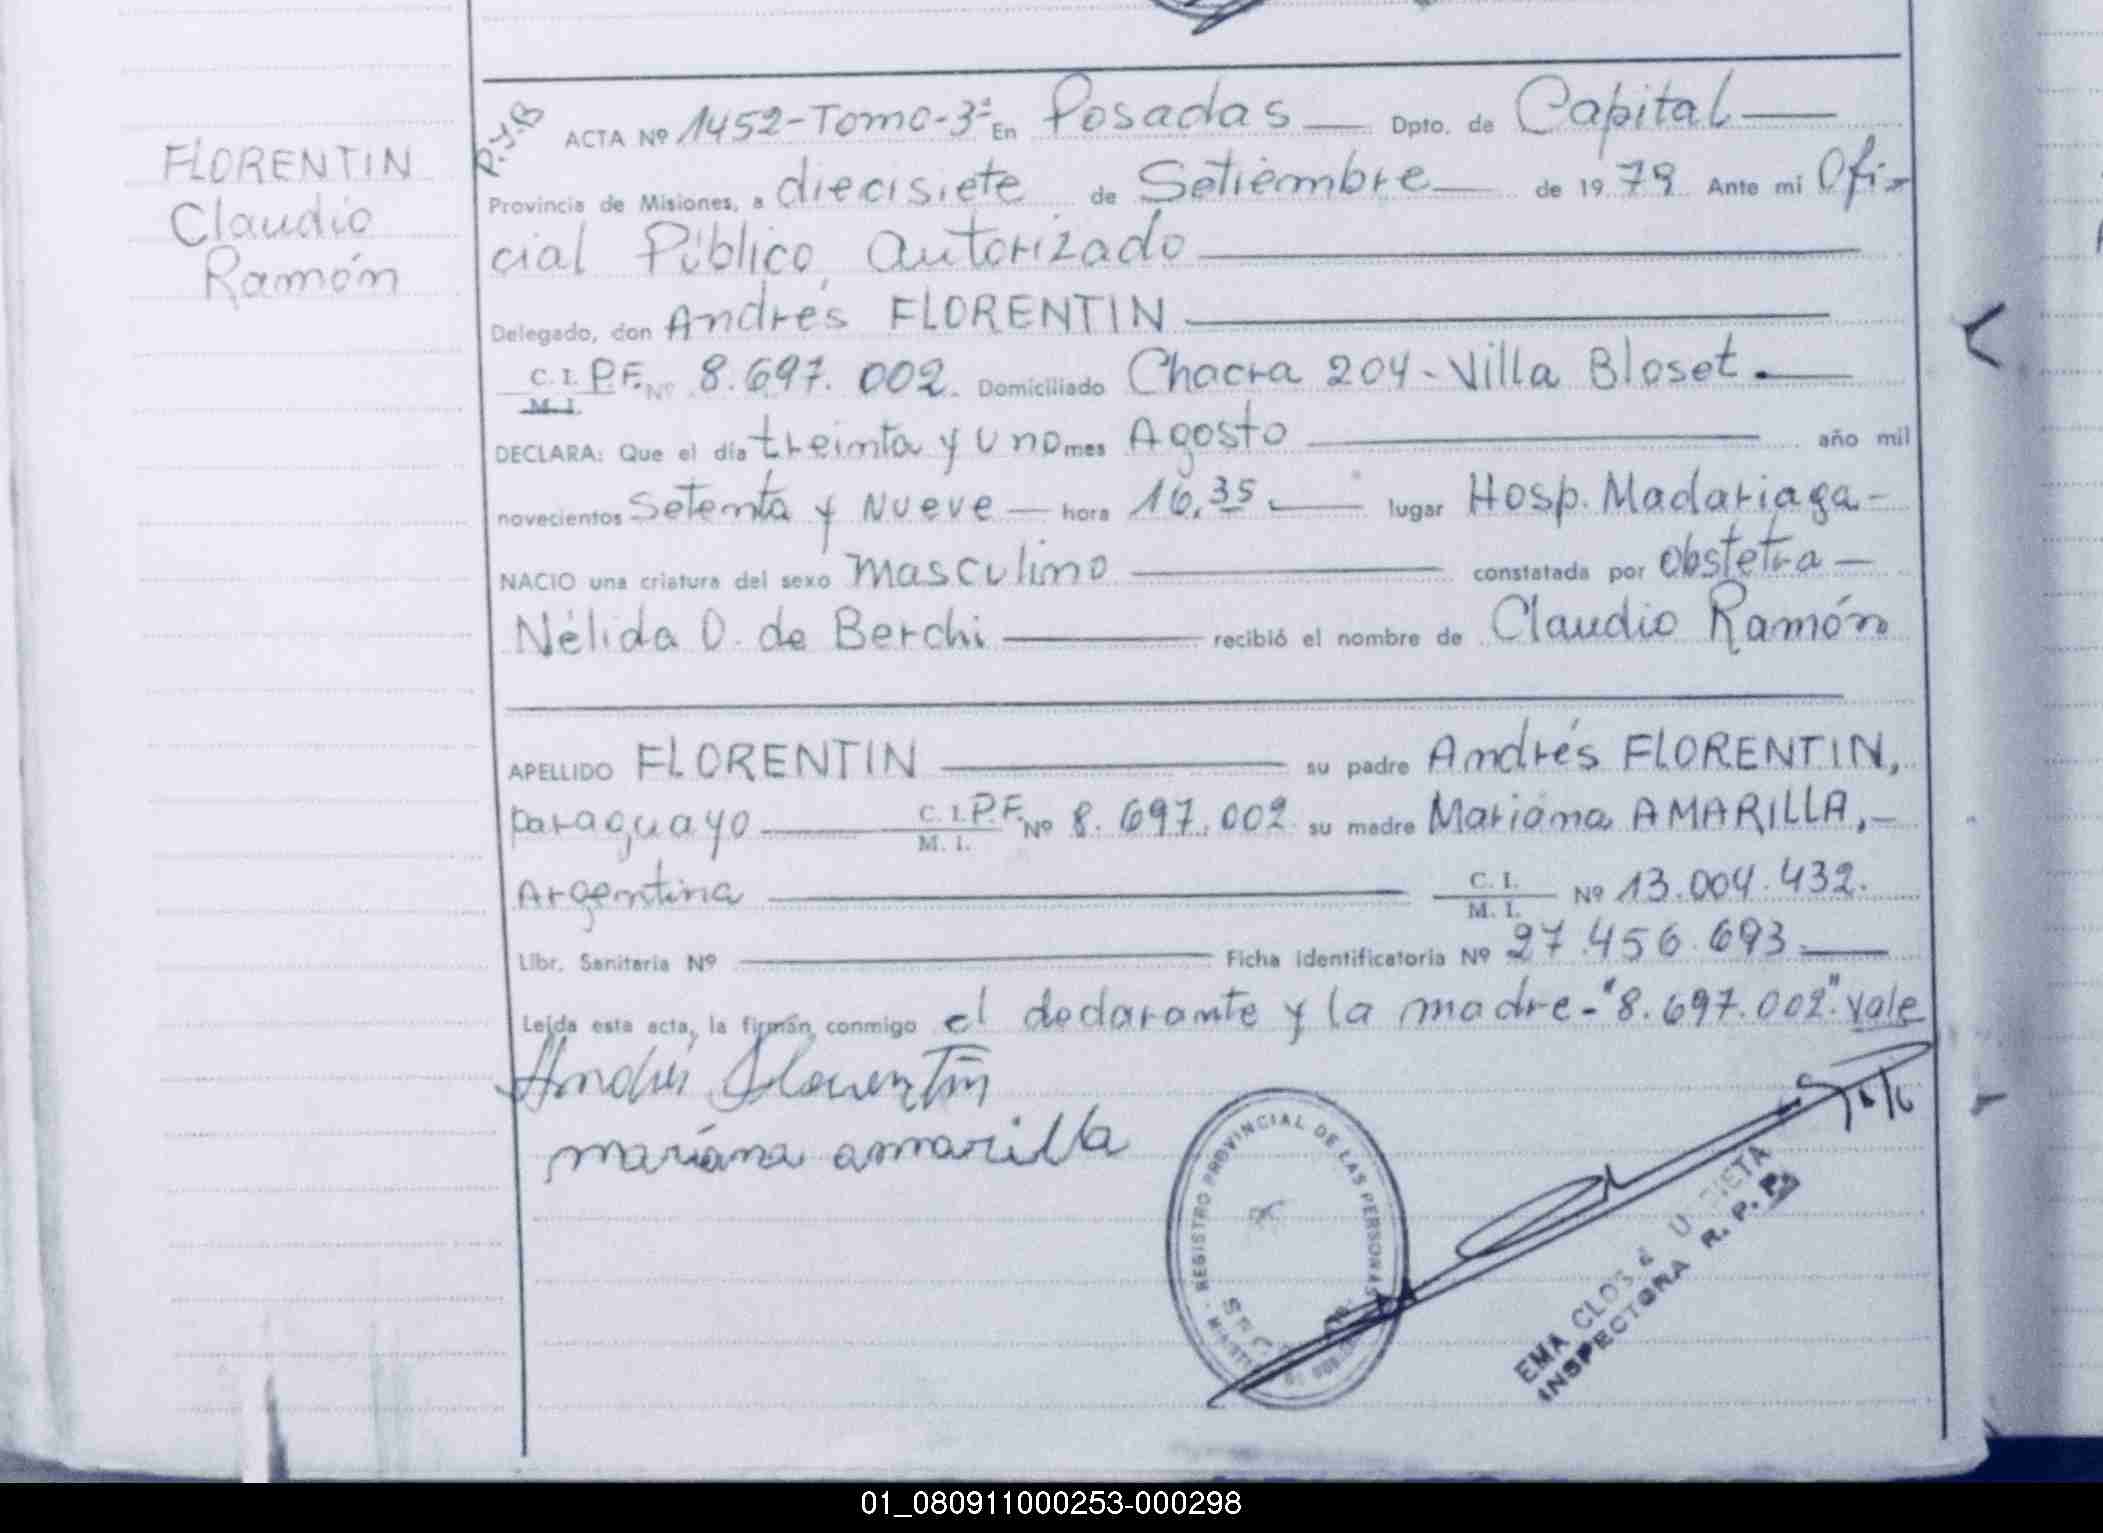 FLORENTIN
Claudio
Ramón
P.J.B
ACTA Nº 1452-Tomo-3ª En Posadas Dpto. de Capital
Provincia de Misiones, a diecisiete de Setiembre de 1979 Ante mi Ofi-
cial Público Autorizado
Delegado, don Andrés FLORENTIN
C. I. P.F. Nº 8.697.002. Domiciliado Chacra 204 - Villa Bloset.
M. I.
DECLARA: Que el día treinta y uno mes Agosto año mil
novecientos Setenta y Nueve hora 16,35 lugar Hosp. Madariaga-
NACIO una criatura del sexo masculino constatada por obstetra
Nélida O. de Berchi recibió el nombre de Claudio Ramón
APELLIDO FLORENTIN su padre Andrés FLORENTIN,
paraguayo C. I. P.F. Nº 8.697.002 su madre Mariana AMARILLA,-
M. I.
Argentina C. I. Nº 13.004.432.
M. I.
Libr. Sanitaria Nº Ficha identificatoria Nº 27.456.693.
Leída esta acta, la firmán conmigo el declarante y la madre-"8.697.002". vale
Andrés Florentín
mariana amarilla
REGISTRO PROVINCIAL DE LAS PERSONAS
EMA CLOS de
INSPECTORA R. P. P.
01_080911000253-000298